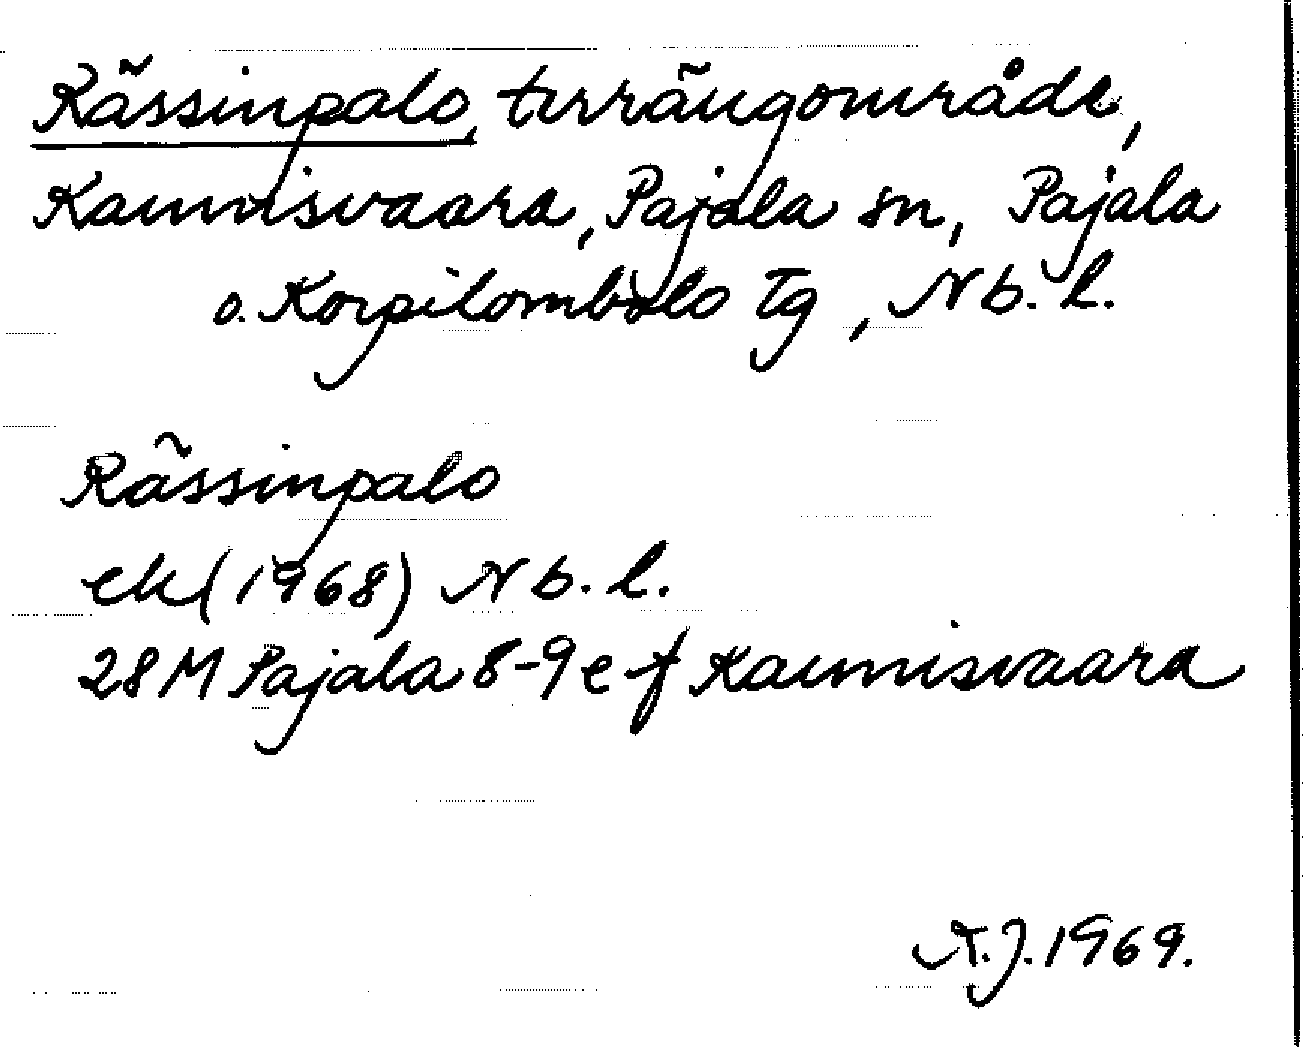 Rässinpalo, terrängområde,
Kaunisvaara, Pajala sn, Pajala
o. Korpilombolo Tg, Nb. l.
Rässinpalo
ek (1968) Nb. l.
28 M Pajala 8-9 e f Kaunisvaara
A.J. 1969.